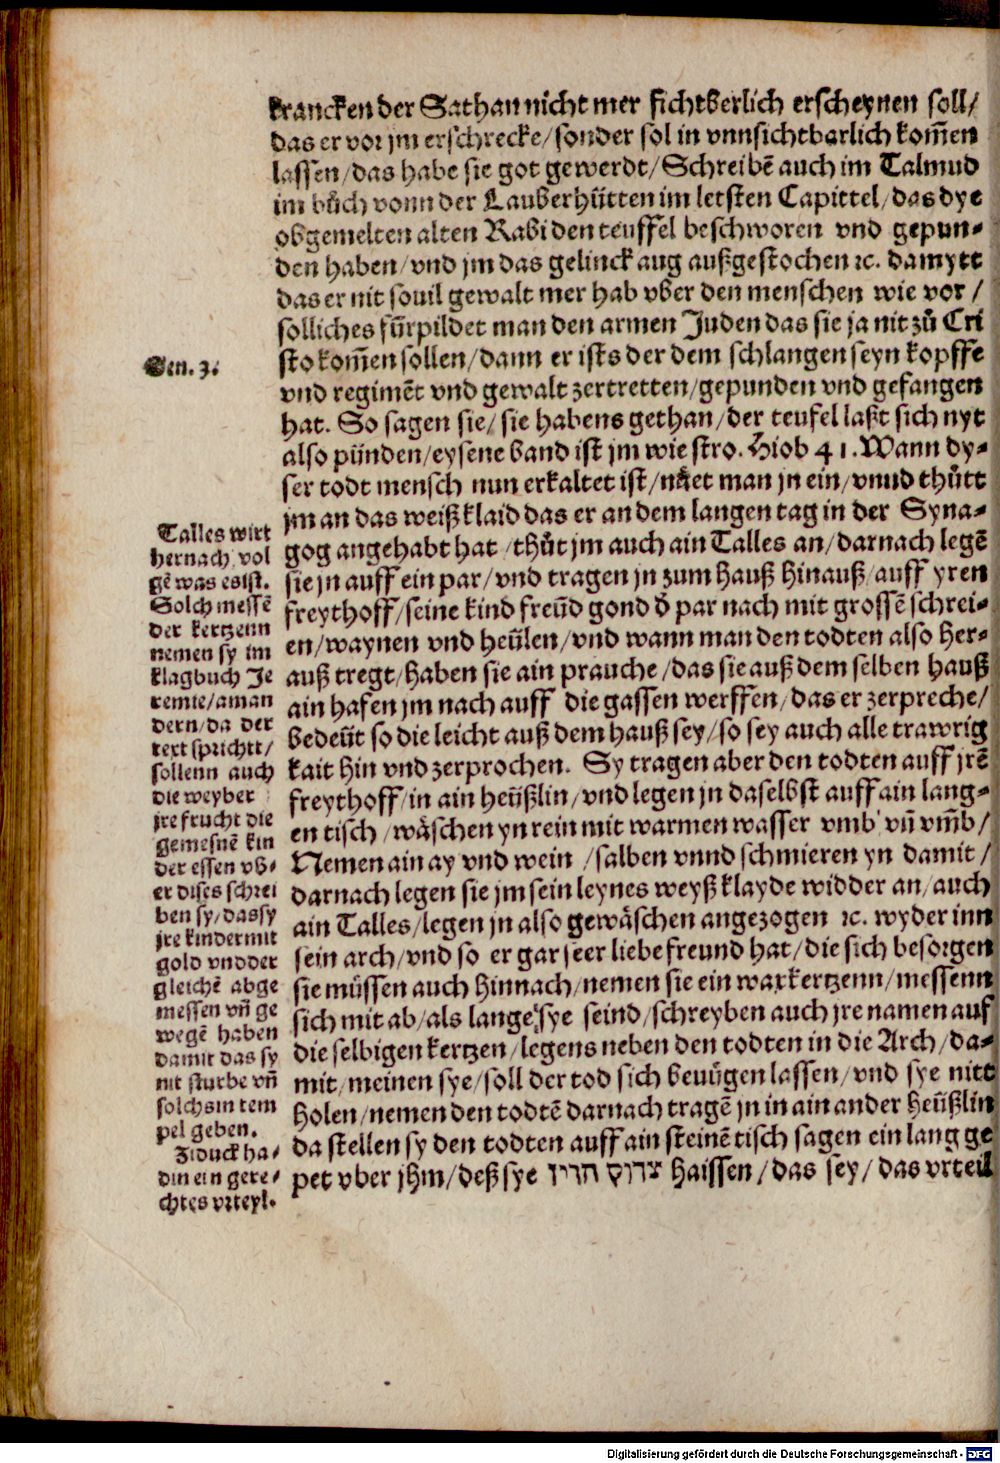 krancken der Sathan nicht mer sichtberlich erscheynen soll/
das er vor jm erschrecke/sonder sol in vnnsichtbarlich kom̃en
lassen/das habe sie got gewerdt/Schreibẽ auch im Talmud
im bůch vonn der Lauberhütten im letsten Capittel/das dye
obgemelten alten Rabi den teuffel beschworen vnd gepun-
den haben/vnd jm das gelinck aug außgestochen ꝛc. damytt
das er nit souil gewalt mer hab vber den menschen wie vor/
solliches fürpildet man den armen Juden das sie ja nit zů Cri
sto kom̃en sollen/dann er ists der dem schlangen seyn kopffe
vnd regimẽt vnd gewalt zertretten/gepunden vnd gefangen
hat. So sagen sie/sie habens gethan/der teufel laßt sich nyt
also pünden/eysene band ist jm wie stro. Hiob 41. Wann dy-
ser todt mensch nun erkaltet ist/nået man jn ein/vnnd thůtt
jm an das weiß klaid das er an dem langen tag in der Syna-
gog angehabt hat/thůt jm auch ain Talles an/darnach legẽ
sie jn auff ein par/vnd tragen jn zum hauß hinauß/auff yren
freythoff/seine kind freünd gond d̕ par nach mit grossẽ schrei-
en/waynen vnd heülen/vnd wann man den todten also her-
auß tregt/haben sie ain prauche/das sie auß dem selben hauß
ain hafen jm nach auff die gassen werffen/das er zerpreche/
bedeüt so die leicht auß dem hauß sey/so sey auch alle trawrig
kait hin vnd zerprochen. Sy tragen aber den todten auff jrẽ
freythoff/in ain heüßlin/vnd legen jn daselbst auff ain lang-
en tisch/wäschen yn rein mit warmen wasser vmb vñ vm̃b/
Nemen ain ay vnd wein/salben vnnd schmieren yn damit/
darnach legen sie jm sein leynes weyß klayde widder an/auch
ain Talles/legen jn also gewäschen angezogen ꝛc. wyder inn
sein arch/vnd so er gar seer liebe freund hat/die sich besorgen
sie müssen auch hinnach/nemen sie ein waxkertzenn/messenn
sich mit ab/als lange sye seind/schreyben auch jre namen auf
die selbigen kertzen/legens neben den todten in die Arch/da-
mit/meinen sye/soll der tod sich benügen lassen/vnd sye nitt
holen/nemen den todtẽ darnach tragẽ jn in ain ander heüßlin
da stellen sy den todten auff ain steinẽ tisch sagen ein lang ge
pet vber jhm/deß sye צדוק הדין haissen/das sey/das vrteil
Gen. 3.
Talles wirt
hernach vol
gẽ was es ist.
Solch messẽ
der kertzenn
nemen sy im
klagbuch Je
remie/am an
dern/da der
text sprichtt/
sollenn auch
die weyber
jre frucht die
gemesnẽ kin
der essen vb-
er dises schrei
ben sy/das sy
jre kinder mit
gold vnd der
gleichẽ abge
messen vñ ge
wegẽ haben
damit das sy
nit sturbe vñ
solchs in tem
pel geben.
Ziduck ha-
din ein gere-
chtes vrteyl.
Digitalisierung gefördert durch die Deutsche Forschungsgemeinschaft - DFG